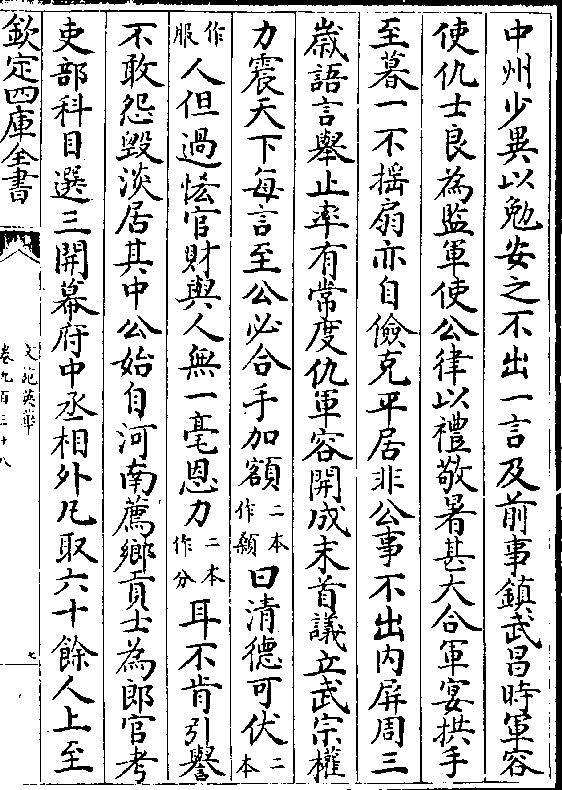 中州少異以勉安之不出一言及前事鎮武昌時軍容
使仇士良為監軍使公律以禮敬暑甚大合軍宴拱手
至暮一不揺扇亦自儉克平居非公事不出内屏周三
嵗語言舉止率有常度仇軍容開成末首議立武宗權
力震天下每言至公必合手加額二本作顙曰清德可伏二本
作服人但過恡官財與人無一毫恩力二本作分耳不肯引譽
不敢怨毁淡居其中公始自河南薦鄉貢士為郎官考
吏部科目選三開幕府中丞相外凡取六十餘人上至
欽定四庫全書
文苑英華
卷九百三十八
七